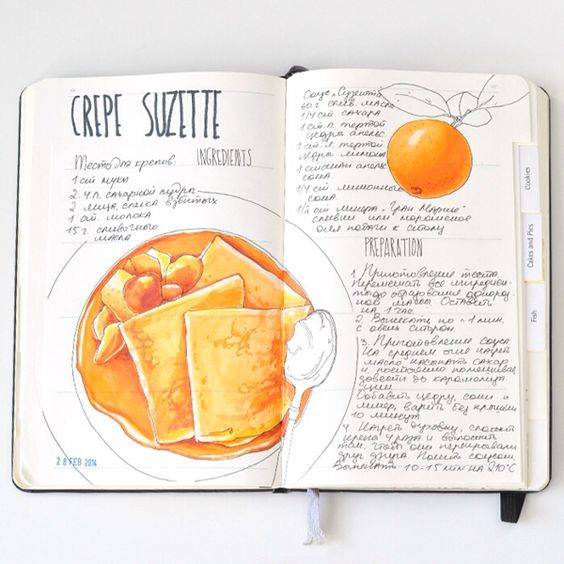 CREPE SUZETTE
INGREDIENTS
Тесто для крепов:
1 ст мука
2 ч.л. сахарной пудры
2 яйца, слегка взбитых
1 ст. молока
15 г сливочного
масла
28 FEB 2014
Соус „Сузетта"
60 г слив. масла
1/4 ст сахара
1 ст.л. тертой
цедры апельс.
1 ст.л. тертой
цедры лимона
1 стакан апельс
сока
1/4 ст лимонного
сока
1/2 ст ликера „Гран Марнье"
сливки или мороженое
для подачи к столу
PREPARATION
1. Приготовление теста
Перемешать все ингредиен-
ты до образования однород-
ной массы. Оставить
на 1 час
2. Выпекать по ≈ 1 мин.
с обеих сторон.
3. Приготовление соуса
На среднем огне нагреть
масло, насыпать сахар
и, постоянно помешивая,
довести до карамелизации
Добавить цедру, соки и
ликер, варить без крышки
10 минут
4. Нагреть духовку, сложить
крепы и выложить
так, чтобы они перекрывали
друг друга. Полить соусом.
Выпекать 10-15 мин на 210°C
Cookies
Cakes and Pies
Fish